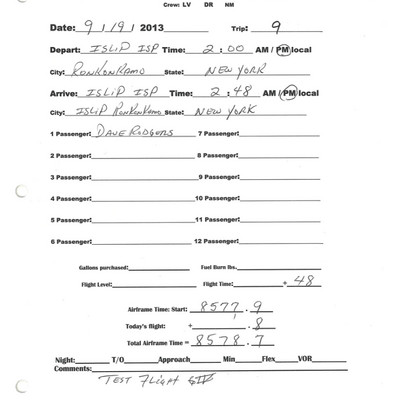 Crew: LV DR NM
Date: 9 / 19 / 2013 Trip: 9
Depart: ISLIP ISP Time: 2 : 00 AM / PM local
City: RONKONKAMO State: NEW YORK
Arrive: ISLIP ISP Time: 2 : 48 AM / PM local
City: ISLIP RONKONKAMO State: NEW YORK
1 Passenger: DAVE RODGERS 7 Passenger:
2 Passenger: 8 Passenger:
3 Passenger: 9 Passenger:
4 Passenger: 10 Passenger:
5 Passenger: 11 Passenger:
6 Passenger: 12 Passenger:
Gallons purchased: Fuel Burn lbs.
Flight Level: Flight Time: + 48
Airframe Time: Start: 8577 . 9
Today's flight: + . 8
Total Airframe Time = 8578 . 7
Night: T/O Approach Min Flex VOR
Comments:
TEST FLIGHT